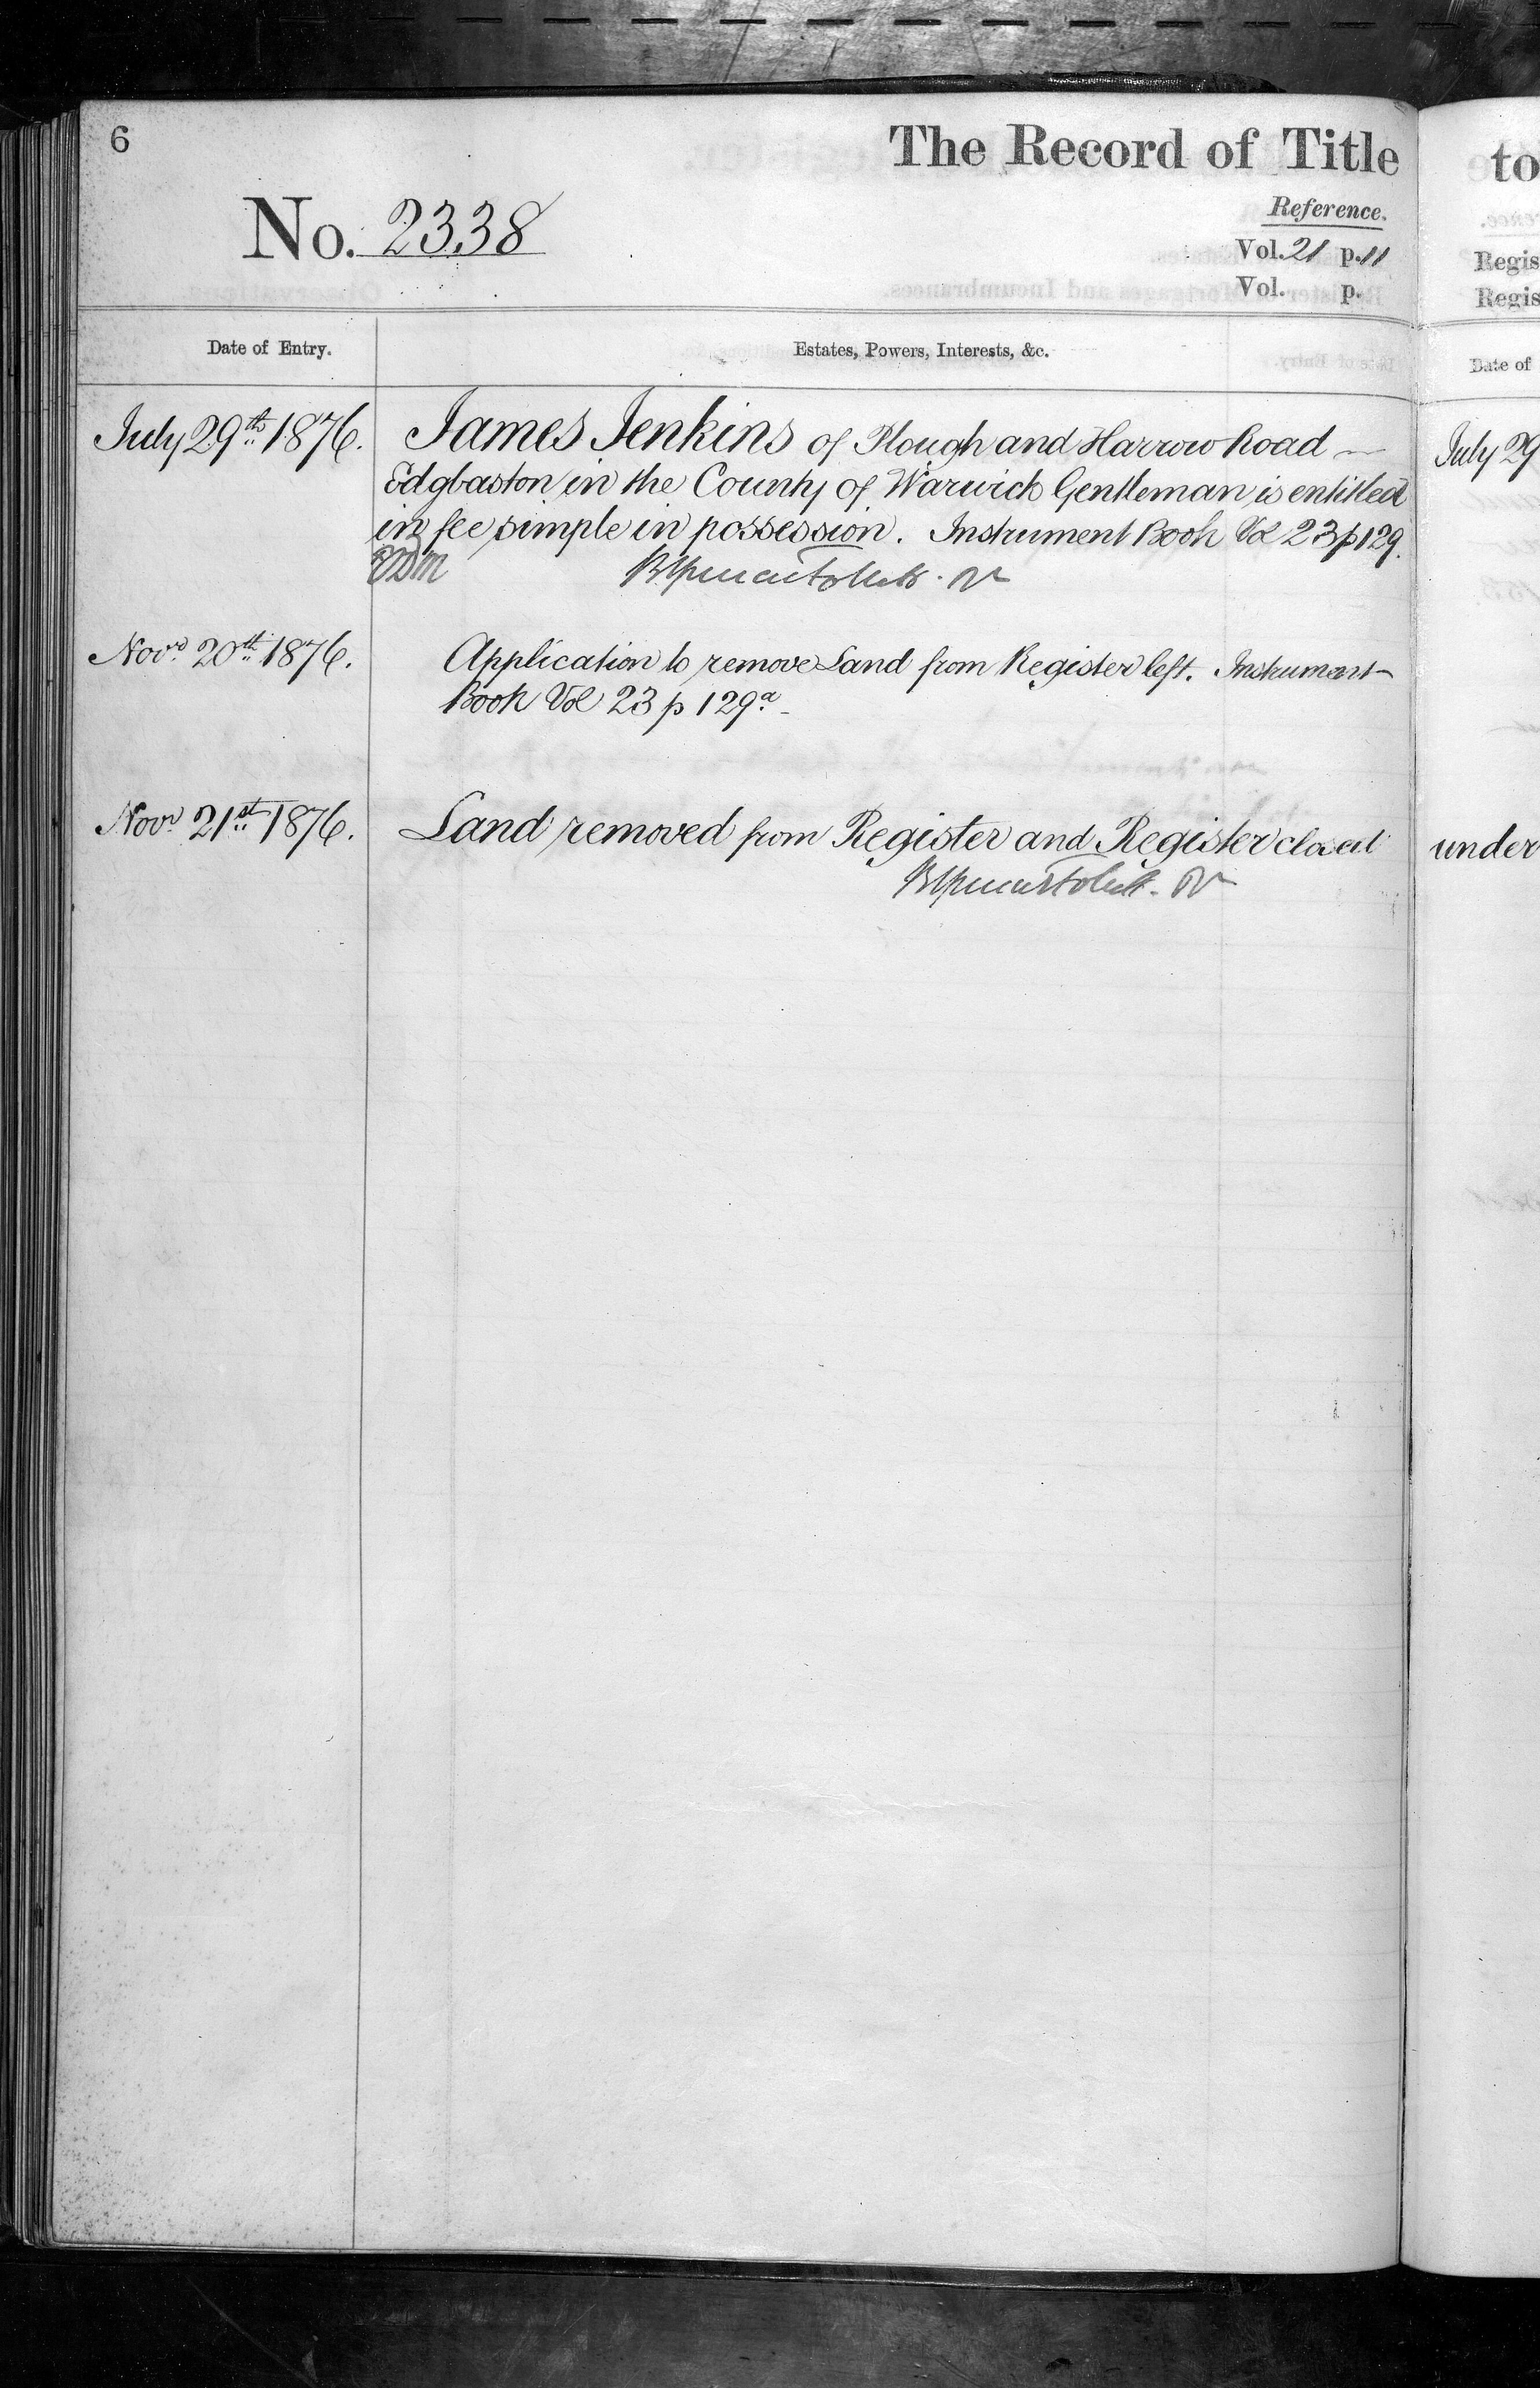 6
The Record of Title
No. 2338
Reference.
Vol. 21 p. 11
Vol. p.
Date of Entry.
Estates, Powers, Interests, &c.
July 29th 1876.
James Jenkins of Plough and Harrow Road
Edgbaston in the County of Warwick Gentleman is entitled
in fee simple in possession. Instrument Book Vol 23 p 129.
Novr 20th 1876.
Application to remove Land from Register left. Instrument
Book Vol 23 p 129a
Novr 21st 1876.
Land removed from Register and Register closed
to
Regis
Regis
Date of
July 29
under